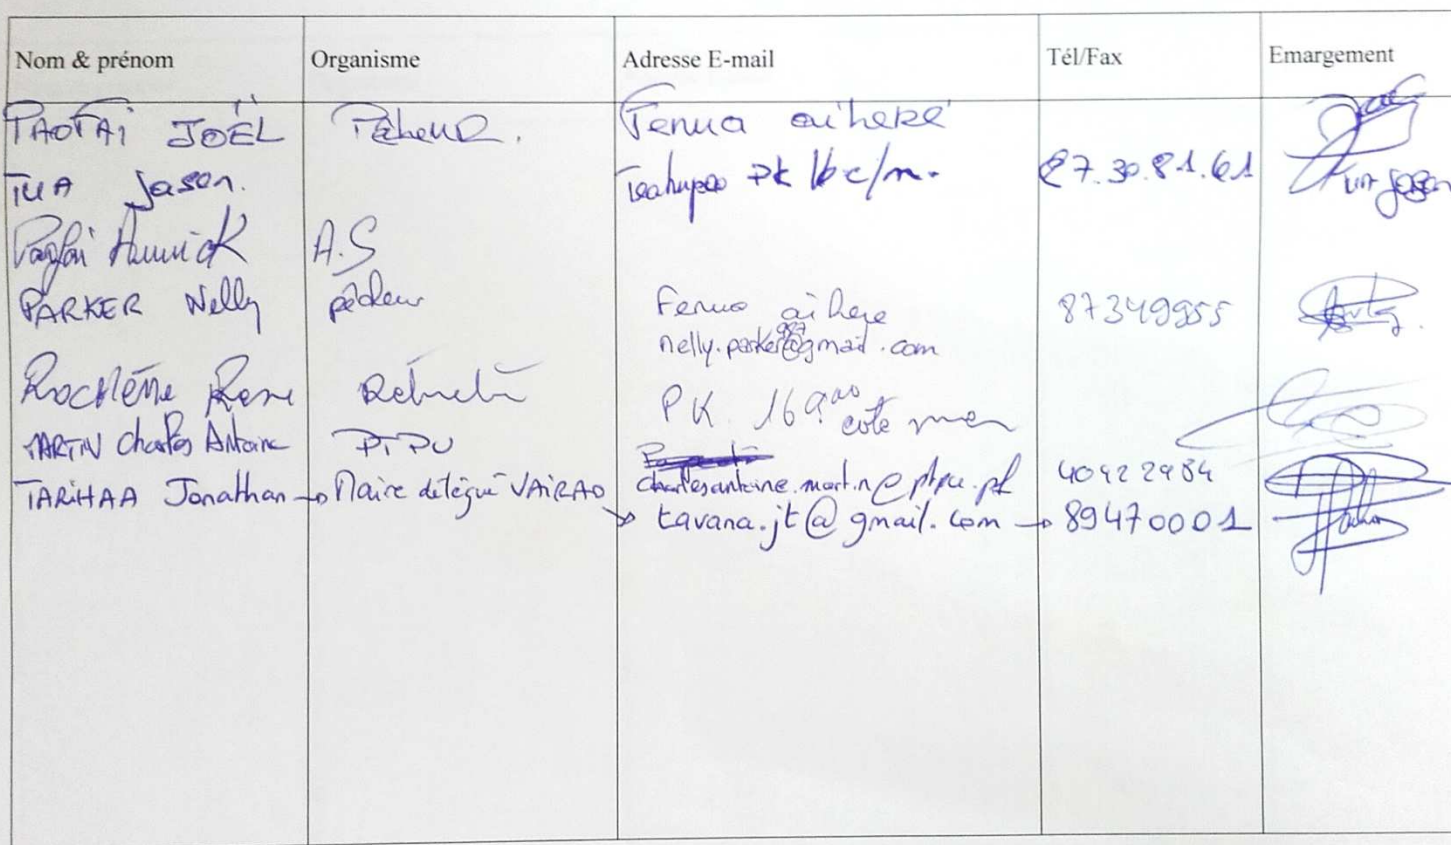 Nom & prénom Organisme Adresse E-mail Tél/Fax Emargement
PAOFAI JOËL Pêcheur. Fenua aihere
TUA Jason. Teahupoo Pk 16 c/m. 87.30.81.61 Tua Jason
Paofai Annick A.S
PARKER Nelly pêcheur Fenua aihere 87349955
nelly.parker987@gmail.com
Rochette Rene Retraité PK. côté mer
MARTIN Charles Antoine PTPU charlesantoine.martin@ptpu.pf 40422984
TARIHAA Jonathan → Maire délégué VAIRAO → tavana.jt@gmail.com → 89470001